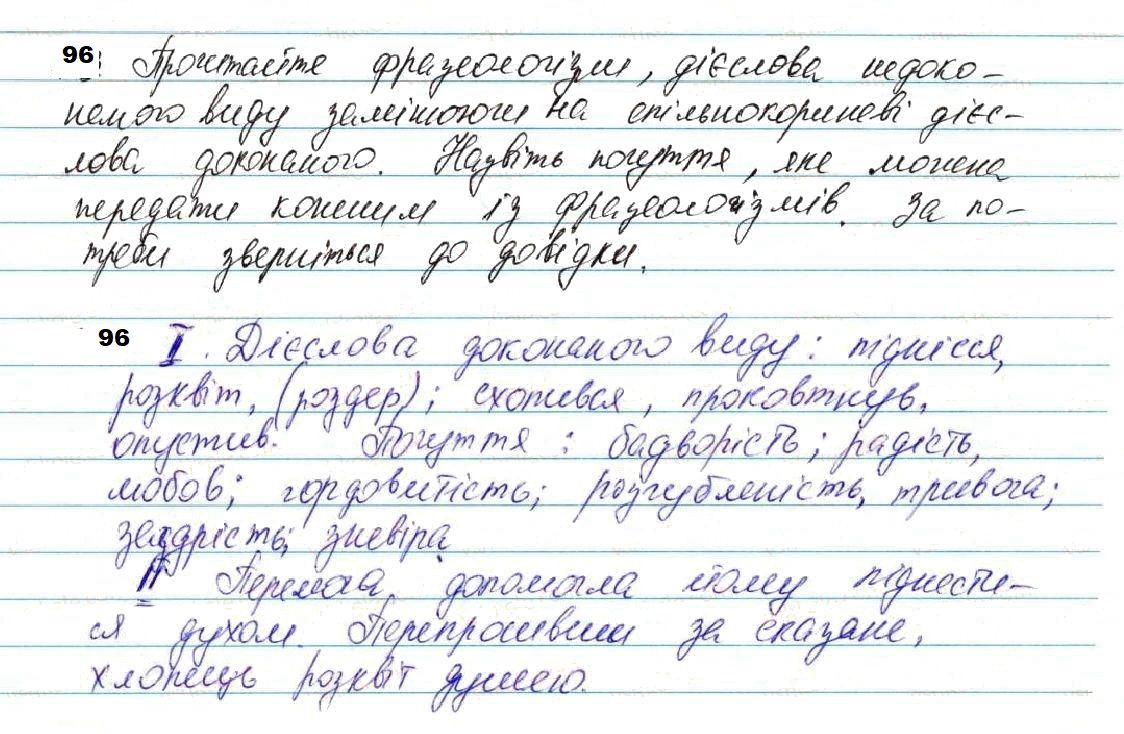 96. Прочитайте фразеологізми, дієслова недоко-
наного виду замінюючи на спільнокореневі дієс-
лова доконаного. Назвіть почуття, яке можна
передати кожним із фразеологізмів. За по-
треби зверніться до довідки.
96 I. Дієслова доконаного виду: піднісся,
розквіт, (роздер); схопився, проковтнув,
опустив. Почуття: бадьорість; радість,
любов; гордовитість; розгубленість, тривога;
заздрість; зневіра.
II Перемога допомогла йому піднести-
ся духом. Перепросивши за сказане,
хлопець розквіт душею.